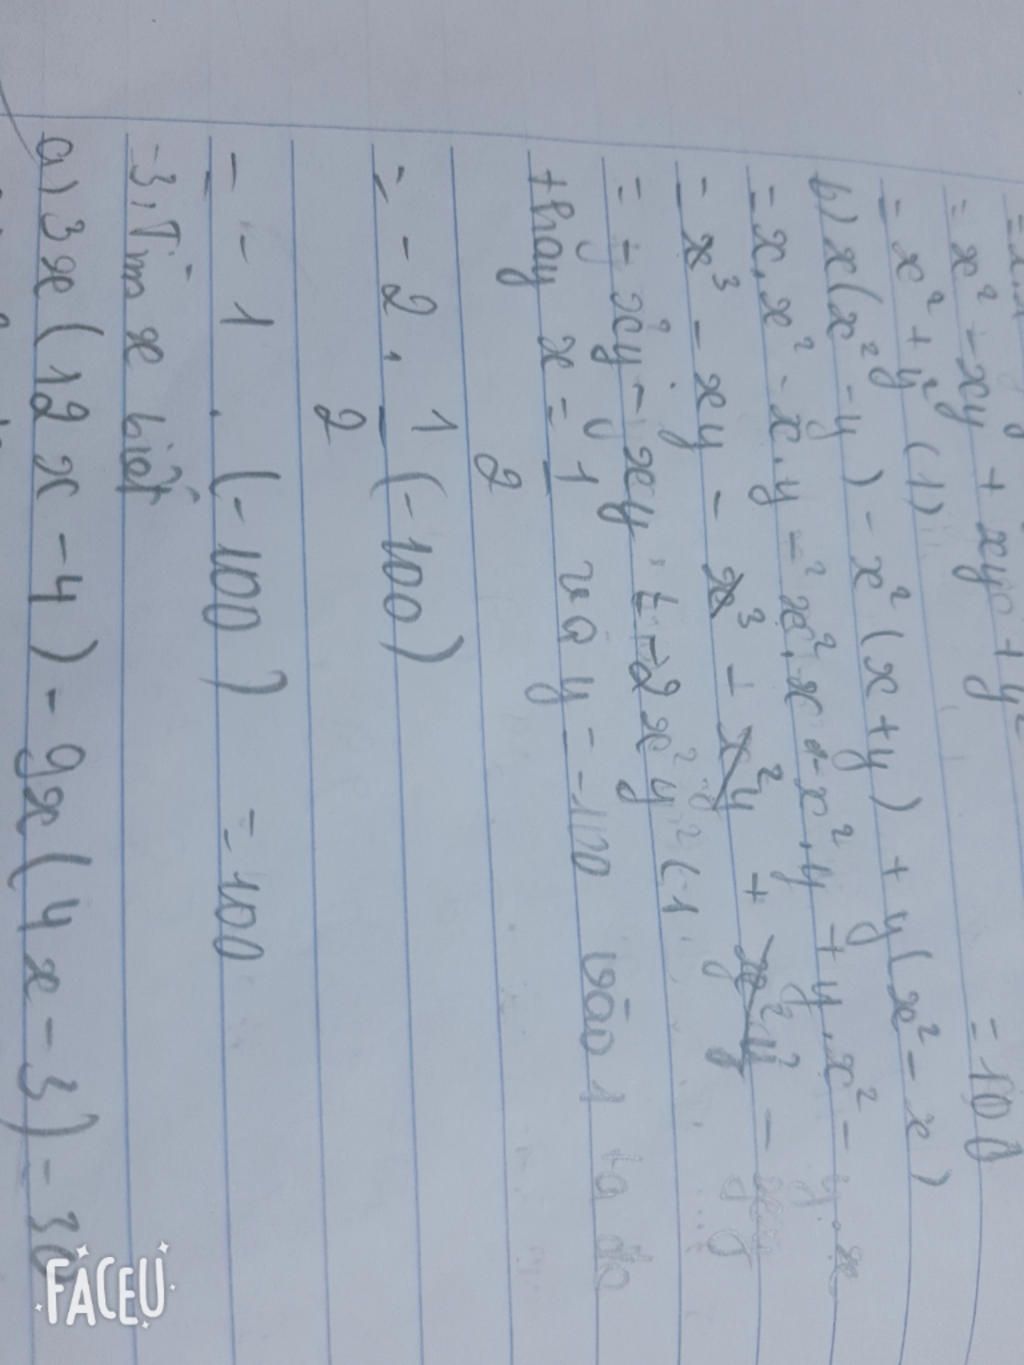 = x² - xy + xy + y² = 100
= x² + y² (1)
b) x(x² - y) - x² (x + y) + y(x² - x)
= x.x² - x.y - x².x - x².y + y.x² - y.x
= x³ - xy - x³ - x²y + x²y -
= - xy - xy = -2xy (1
thay x = 1/2 và y = -100 vào 1 ta
= -2 . 1/2 (-100)
= -1 . (-100) = 100
3, Tìm x biết
a) 3x(12x - 4) - 9x(4x - 3) = 30
FACEU